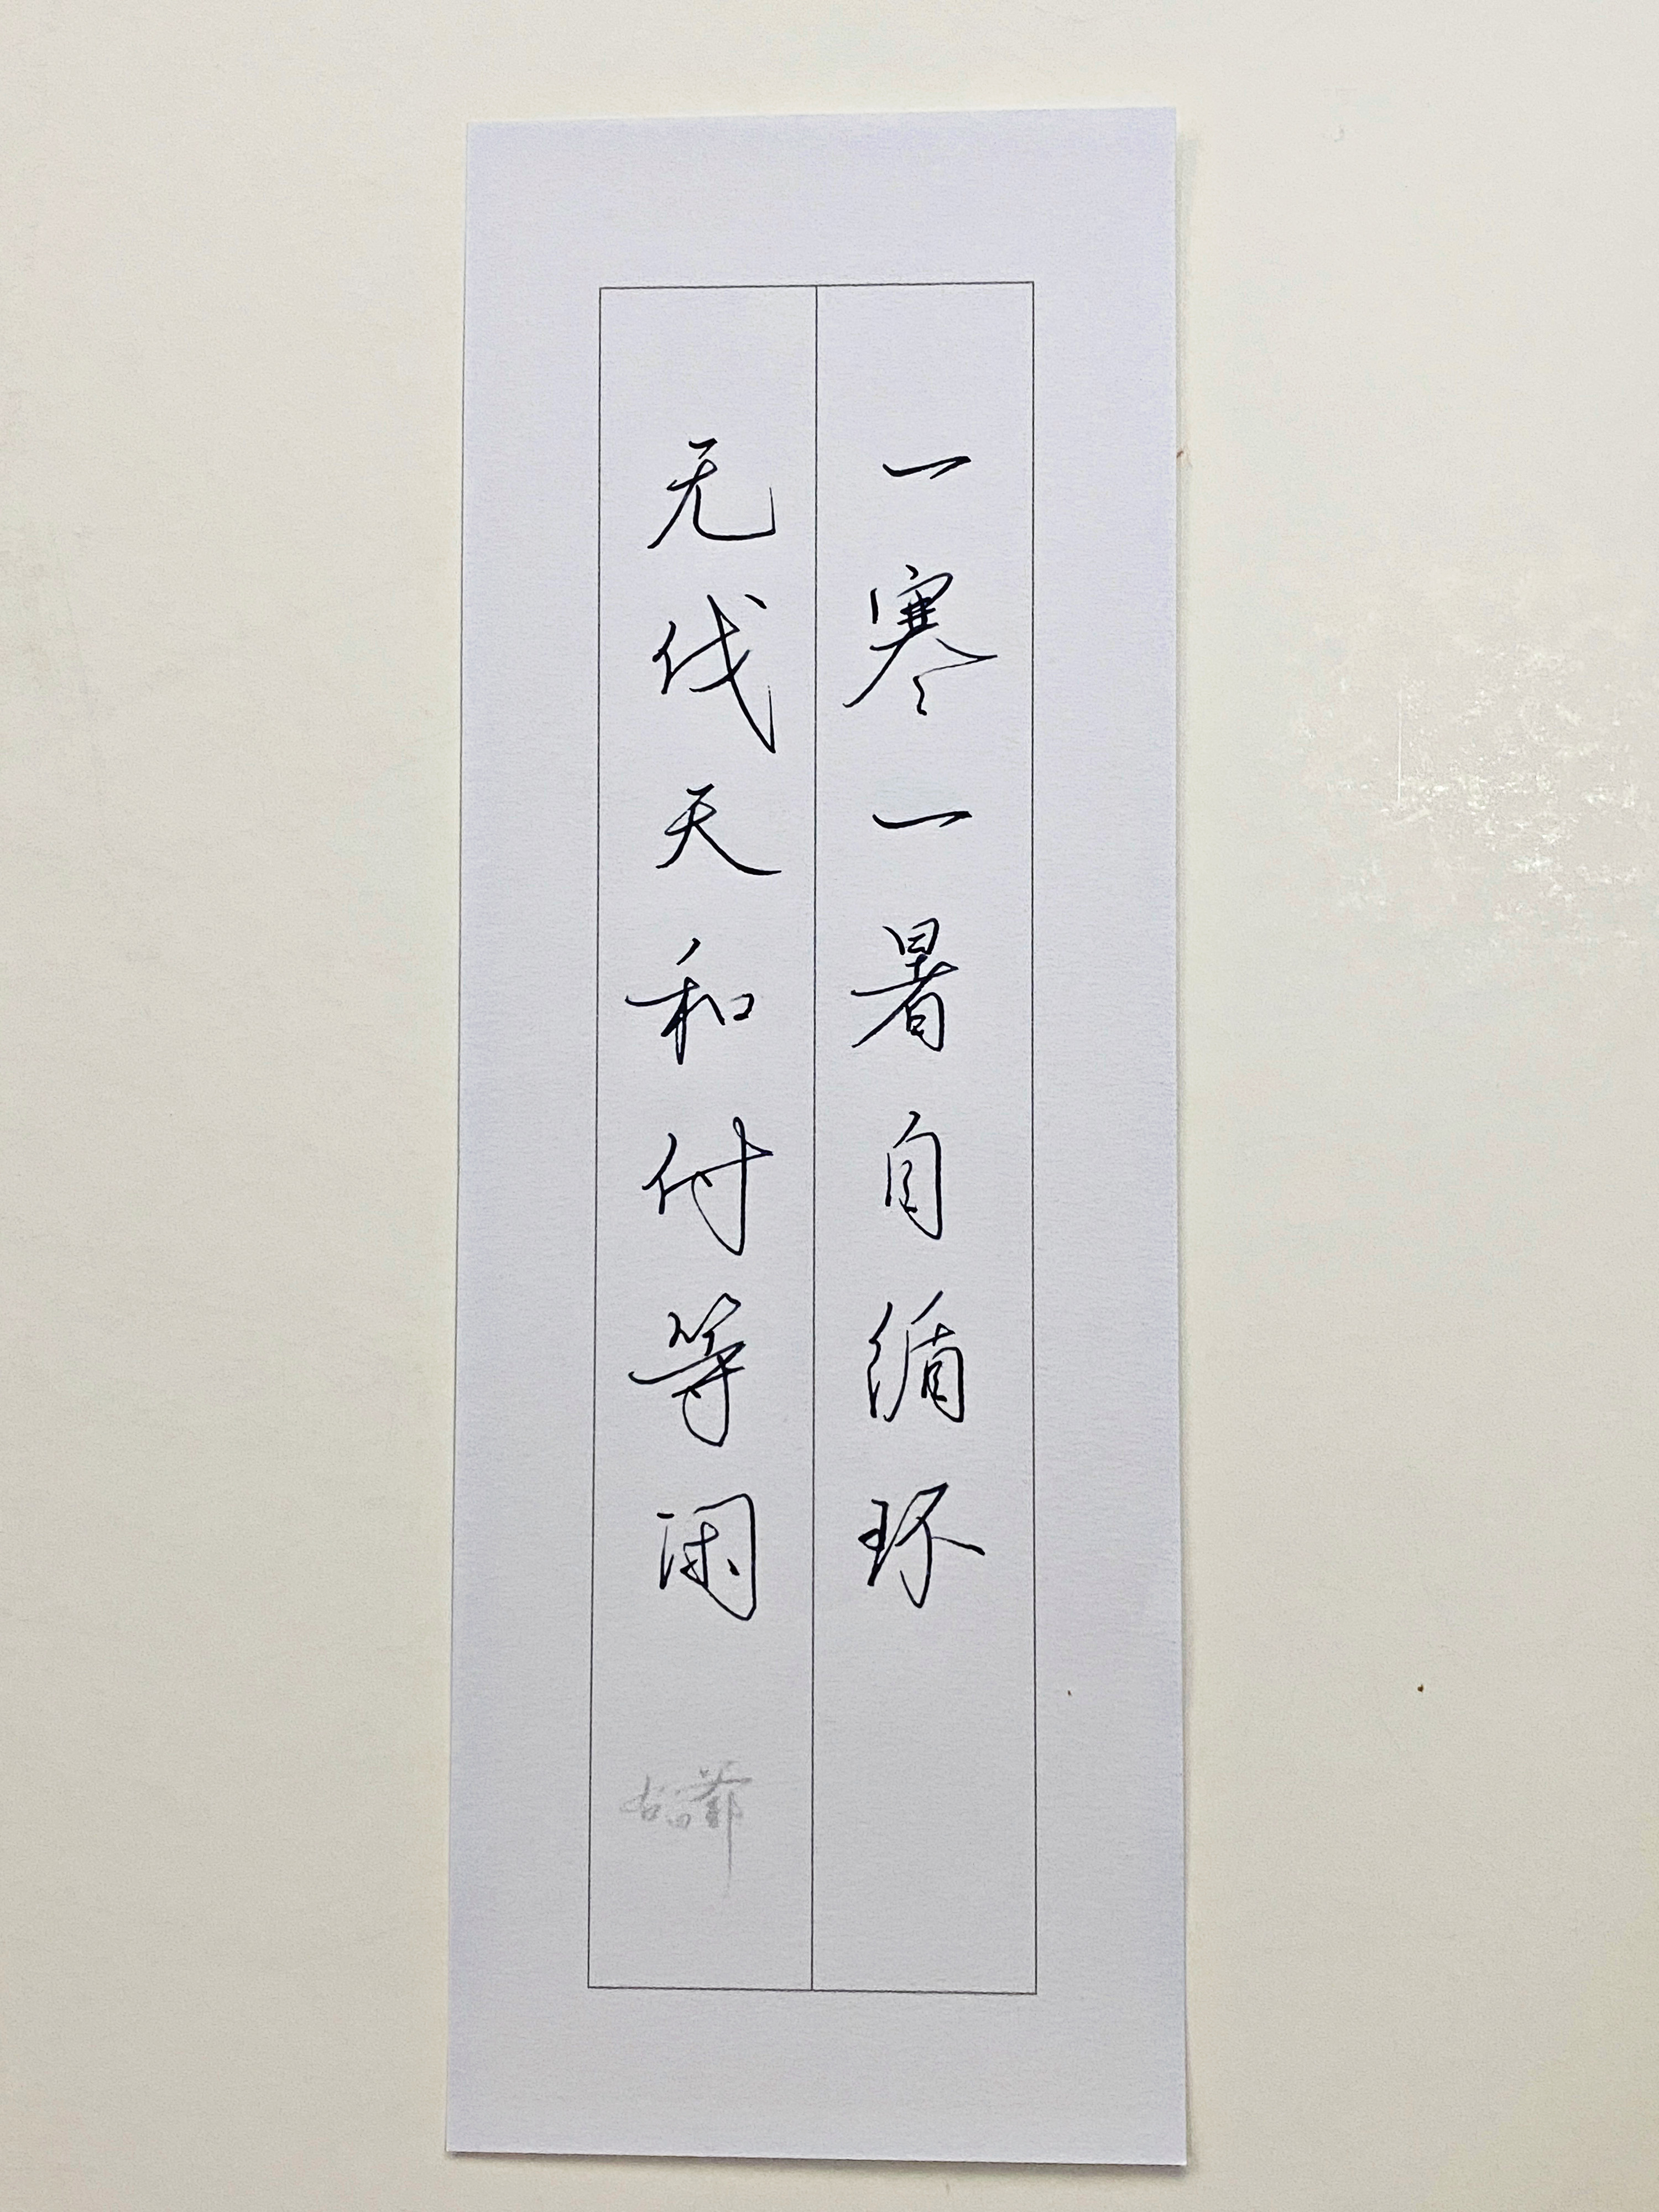 一寒一暑自循环
无伐天和付等闲